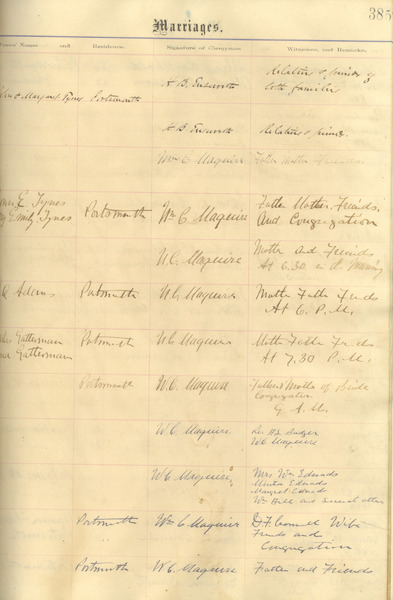 385
Marriages.
Names and Residence. Signature of Clergyman Witnesses, and Remarks.
Relatives & friends of
both families
Margaret Tynes Portsmouth
Relatives & friends
Wm C Maguire Father Mother Friends
E Tynes Portsmouth Wm C Maguire Father Mother Friends.
Emily Tynes And Congregation
W C Maguire Mother and Friends
At 6.30 in the
Adams Portsmouth W C Maguire Mother Father Friends
At 6 P.M.
Gatterman Portsmouth W C Maguire Moth Father Friends
Gatterman At 7,30 P.M.
Portsmouth W.C. Maguire Father & Mother of Bride
Congregation
W C Maguire
W C Maguire
W C Maguire Mrs Wm Edwards
Edwards
Margret Edwards
Wm Hall and several others
Portsmouth Wm C Maguire D.F. Wife
Friends and
Congregation
Portsmouth W. C. Maguire Father and Friends